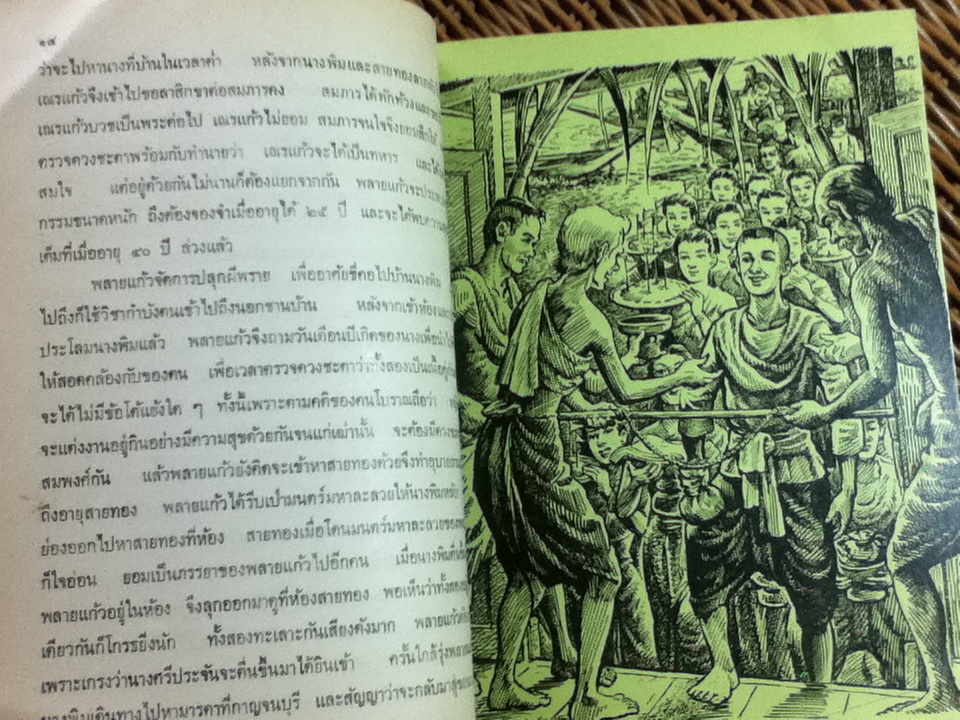 ๑๔
ว่าจะไปหานางที่บ้านในเวลาค่ำ หลังจากนางพิมและสายทองลากลับ
เณรแก้วจึงเข้าไปขอลาสิกขาต่อสมภารคง สมภารได้ทักท้วงและ
เณรแก้วบวชเป็นพระต่อไป เณรแก้วไม่ยอม สมภารจนใจจึงยอมสึกให้
ตรวจดวงชะตาพร้อมกับทำนายว่า เณรแก้วจะได้เป็นทหาร และได้
สมใจ แต่อยู่ด้วยกันไม่นานก็ต้องแยกจากกัน พลายแก้วจะประสบ
กรรมขนาดหนัก ถึงต้องจองจำเมื่ออายุได้ ๒๕ ปี และจะได้พบความ
เต็มที่เมื่ออายุ ๔๐ ปี ล่วงแล้ว
พลายแก้วจัดการปลุกผีพราย เพื่ออาศัยขี่คอไปบ้านนางพิม
ไปถึงก็ใช้วิชากำบังตนเข้าไปถึงนอกชานบ้าน หลังจากเข้าห้องและ
ประโลมนางพิมแล้ว พลายแก้วจึงถามวันเดือนปีเกิดของนางเพื่อนำไป
ให้สอดคล้องกับของตน เพื่อเวลาตรวจดวงชะตาว่าทั้งสองเป็นเนื้อคู่
จะได้ไม่มีข้อโต้แย้งใด ๆ ทั้งนี้เพราะตามคติของคนโบราณถือว่า
จะแต่งงานอยู่กินอย่างมีความสุขด้วยกันจนแก่เฒ่านั้น จะต้องมีดวง
สมพงศ์กัน แล้วพลายแก้วยังคิดจะเข้าหาสายทองด้วยจึงทำอุบาย
ถึงอายุสายทอง พลายแก้วได้รีบเป่ามนตร์มหาละลวยให้นางพิมหลับ
ย่องออกไปหาสายทองที่ห้อง สายทองเมื่อโดนมนตร์มหาละลวยของ
ก็ใจอ่อน ยอมเป็นภรรยาของพลายแก้วไปอีกคน เมื่อนางพิมตื่น
พลายแก้วอยู่ในห้อง จึงลุกออกมาดูที่ห้องสายทอง พอเห็นว่าทั้งสอง
เดียวกันก็โกรธยิ่งนัก ทั้งสองทะเลาะกันเสียงดังมาก พลายแก้ว
เพราะเกรงว่านางศรีประจันจะตื่นขึ้นมาได้ยินเข้า ครั้นใกล้รุ่งพลาย
นางพิมเดินทางไปหามารดาที่กาญจนบุรี และสัญญาว่าจะกลับมาสู่ขอ